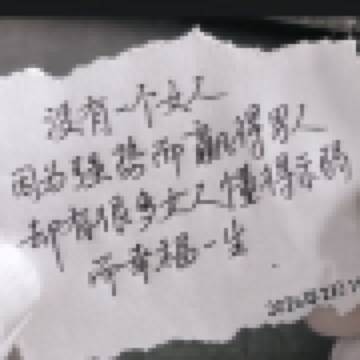 没有一个女人
因为强势而赢得男人
却有很多女人懂得示弱
而幸福一生